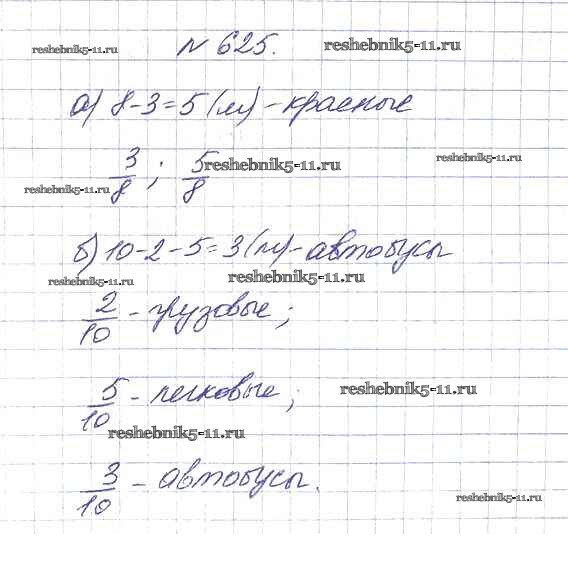 reshebnik5-11.ru № 625. reshebnik5-11.ru
а) 8-3=5 (м) - красные
3/8 ; 5/8 reshebnik5-11.ru reshebnik5-11.ru
reshebnik5-11.ru
б) 10-2-5=3 (м) - автобусы
reshebnik5-11.ru reshebnik5-11.ru
2/10 - грузовые ;
5/10 - легковые ; reshebnik5-11.ru
reshebnik5-11.ru
3/10 - автобусы.
reshebnik5-11.ru